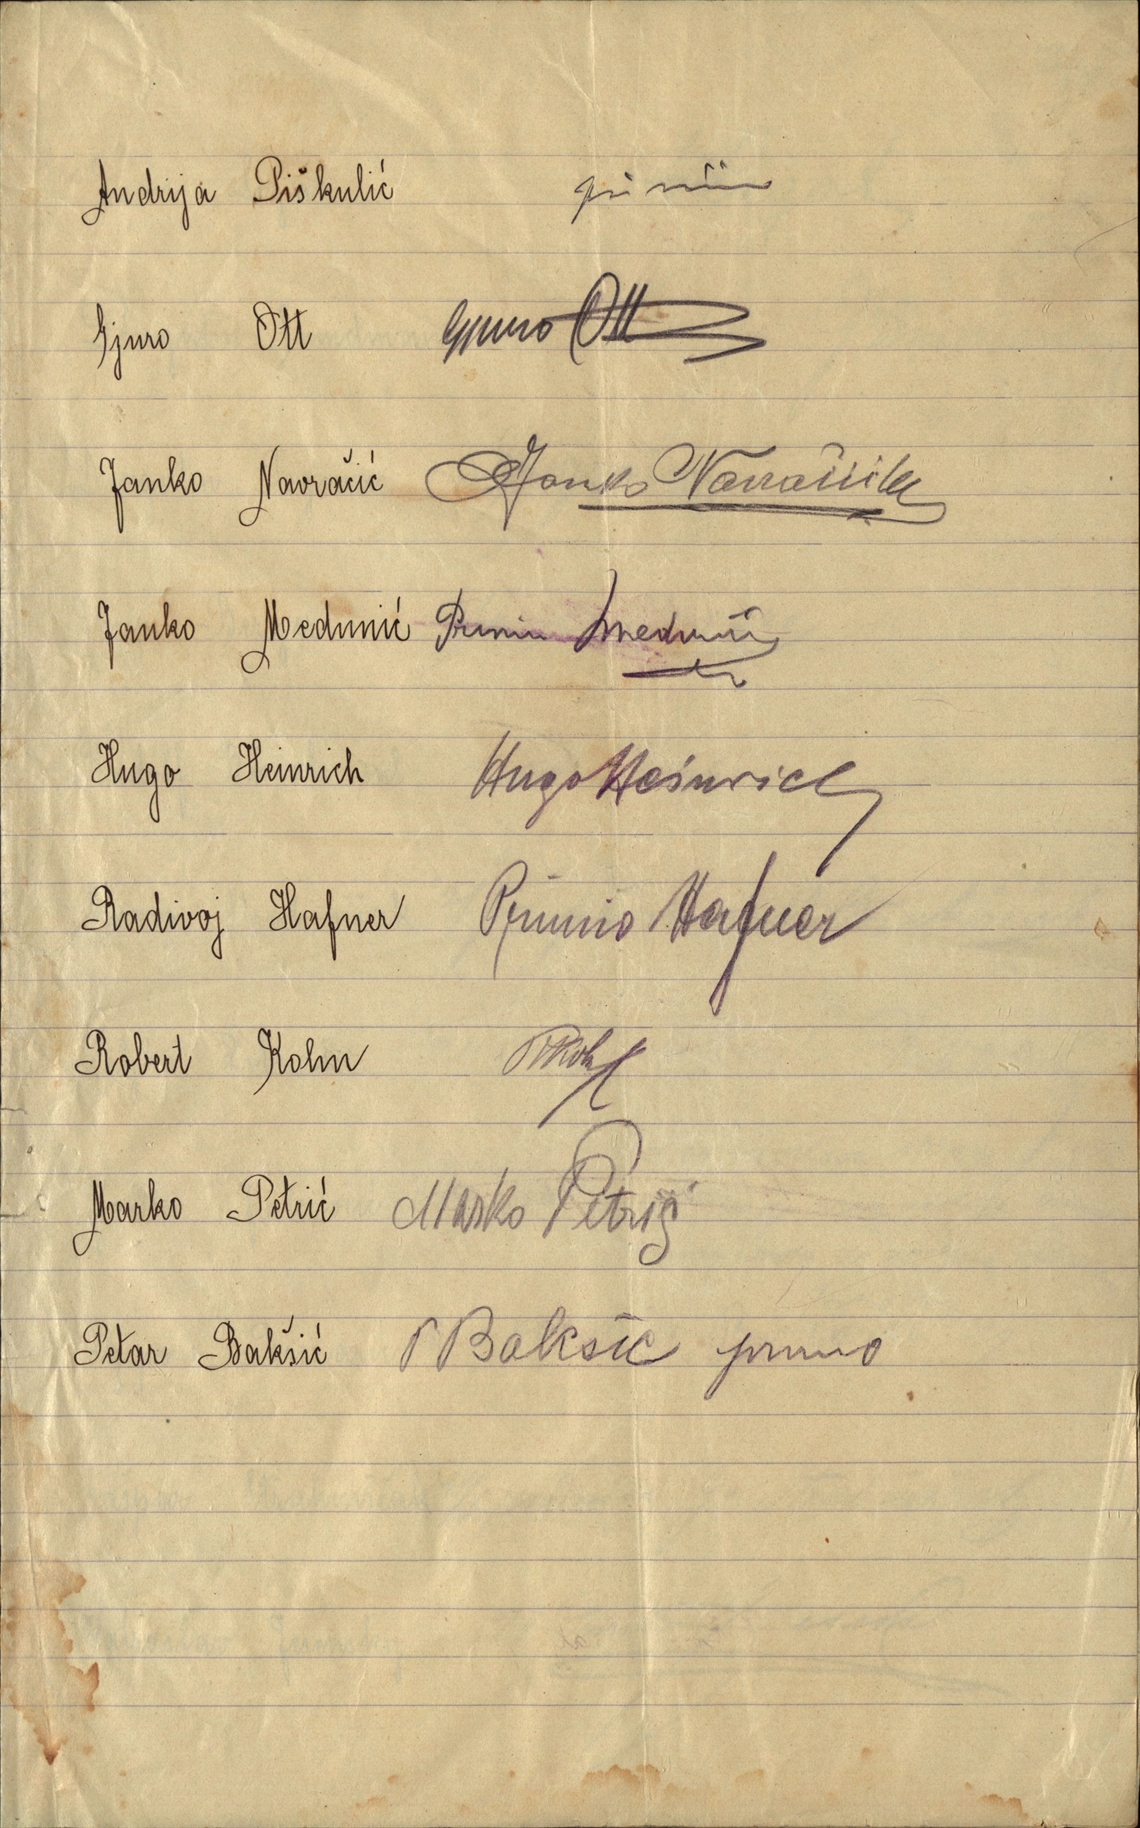 Andrija Piškulić
Gjuro Ott Gjuro Ott
Janko Navračić Janko Navračić
Janko Medunić Primio Medunić
Hugo Heinrich Hugo Heinrich
Radivoj Hafner Primio Hafner
Robert Kohn
Marko Petrić Marko Petrić
Petar Bakšić P Bakšić primio